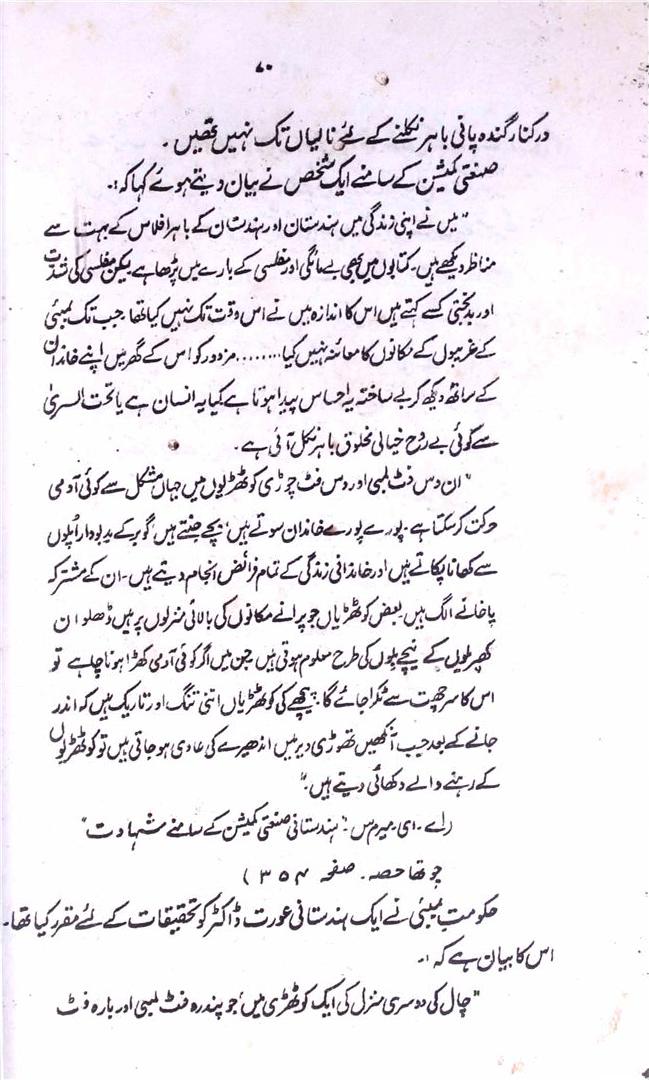 ۷۰
درکنار گندہ پانی باہر نکلنے کے لئے نالیاں تک نہیں تھیں۔
صنعتی کمیشن کے سامنے ایک شخص نے بیان دیتے ہوئے کہا کہ:۔
"میں نے اپنی زندگی میں ہندستان اور ہندستان کے باہر افلاس کے بہت سے
مناظر دیکھے ہیں۔ کتابوں میں بھی بے مائگی اور مفلسی کے بارے میں پڑھا ہے لیکن مفلسی کی شدت
اور بدبختی کسے کہتے ہیں اس کا اندازہ میں نے اس وقت تک نہیں کیا تھا، جب تک بمبئی
کے غریبوں کے مکانوں کا معائنہ نہیں کیا........ مزدور کو اس کے گھر میں اپنے خاندان
کے ساتھ دیکھ کر بے ساختہ یہ احساس پیدا ہوتا ہے کیا یہ انسان ہے یا تحت السریٰ
سے کوئی بے روح خیالی مخلوق باہر نکل آئی ہے۔
"ان دس فٹ لمبی اور دس فٹ چوڑی کوٹھڑیوں میں جہاں مشکل سے کوئی آدمی
حرکت کر سکتا ہے۔ پورے پورے خاندان سوتے ہیں، بچے جنتے ہیں، گوبر کے بدبودار اُپلوں
سے کھانا پکاتے ہیں اور خاندانی زندگی کے تمام فرائض انجام دیتے ہیں۔ ان کے مشترکہ
پاخانے الگ ہیں۔ بعض کوٹھڑیاں جو پرانے مکانوں کی بالائی منزلوں پر ہیں ڈھلوان
کھپریلوں کے نیچے بِلوں کی طرح معلوم ہوتی ہیں جن میں اگر کوئی آدمی کھڑا ہونا چاہے تو
اس کا سر چھت سے ٹکرا جائے گا۔ پیچھے کی کوٹھڑیاں اتنی تنگ اور تاریک ہیں کہ اندر
جانے کے بعد جب آنکھیں تھوڑی دیر میں اندھیرے کی عادی ہو جاتی ہیں تو کوٹھڑیوں
کے رہنے والے دکھائی دیتے ہیں۔"
(اے۔ ای۔ میرمس۔ "ہندستانی صنعتی کمیشن کے سامنے شہادت"
چوتھا حصہ۔ صفحہ ۳۵۴)
حکومت بمبئی نے ایک ہندستانی عورت ڈاکٹر کو تحقیقات کے لئے مقرر کیا تھا۔
اس کا بیان ہے کہ:۔
"چال کی دوسری منزل کی ایک کوٹھڑی میں، جو پندرہ فٹ لمبی اور بارہ فٹ